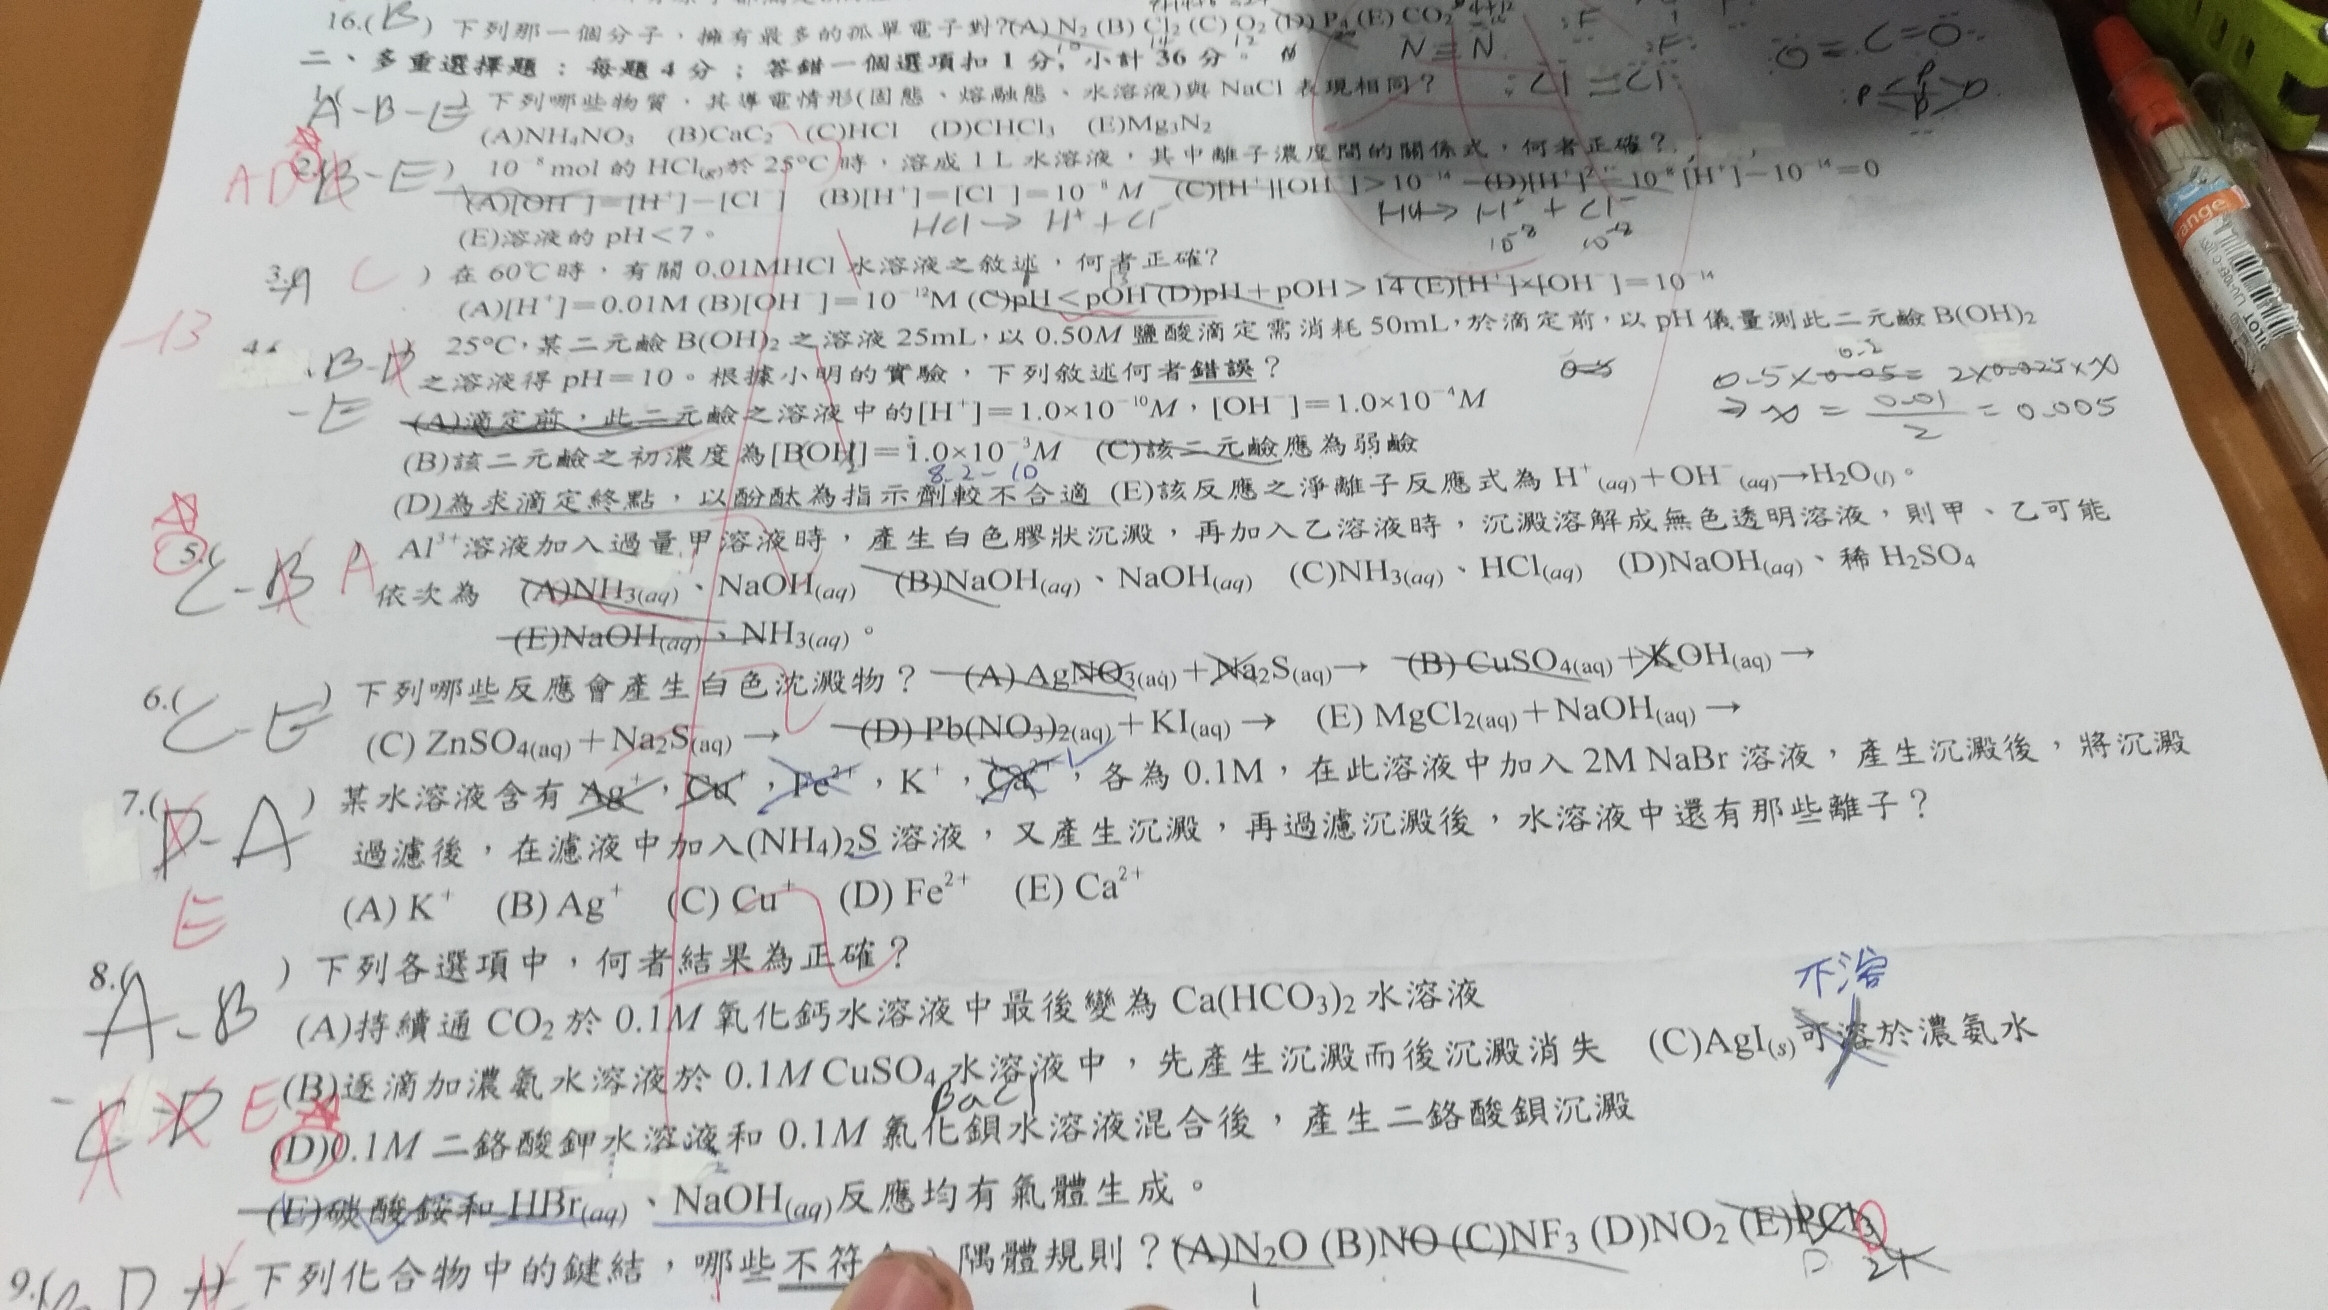 16.(B) 下列那一個分子，擁有最多的孤單電子對?(A) N₂ (B) Cl₂ (C) O₂ (D) P₄ (E) CO₂
N≡N
二、多重選擇題：每題 4 分；答錯一個選項扣 1 分，小計 36 分。
A-B-E ) 下列哪些物質，其導電情形(固態、熔融態、水溶液)與 NaCl 表現相同？
(A)NH₄NO₃ (B)CaC₂ (C)HCl (D)CHCl₃ (E)Mg₃N₂
AD 2.(B-E ) 10⁻⁸ mol 的 HCl(g)於 25°C 時，溶成 1 L 水溶液，其中離子濃度間的關係式，何者正確？
(A)[OH⁻]=[H⁺]−[Cl⁻] (B)[H⁺]=[Cl⁻]=10⁻⁸ M (C)[H⁺][OH⁻]>10⁻¹⁴ (D)[H⁺]²−10⁻⁸[H⁺]−10⁻¹⁴=0
HCl→ H⁺ + Cl⁻
(E)溶液的 pH<7。
10⁻⁸ 10⁻⁸
3.A C ) 在 60℃時，有關 0.01MHCl 水溶液之敘述，何者正確?
(A)[H⁺]=0.01M (B)[OH⁻]=10⁻¹²M (C)pH<pOH (D)pH+pOH>14 (E)[H⁺]×[OH⁻]=10⁻¹⁴
-13
4. B-D 25°C，某二元鹼 B(OH)₂ 之溶液 25mL，以 0.50M 鹽酸滴定需消耗 50mL，於滴定前，以 pH 儀量測此二元鹼 B(OH)₂
-E 之溶液得 pH=10。根據小明的實驗，下列敘述何者錯誤？
0.5×0.05= 2×0.025×x
→ x = 0.01/2 = 0.005
(A)滴定前，此二元鹼之溶液中的[H⁺]=1.0×10⁻¹⁰M，[OH⁻]=1.0×10⁻⁴M
(B)該二元鹼之初濃度為[BOH]=1.0×10⁻³M (C)該二元鹼應為弱鹼
8.2-10
(D)為求滴定終點，以酚酞為指示劑較不合適 (E)該反應之淨離子反應式為 H⁺(aq)+OH⁻(aq)→H₂O(l)。
5.( C-B A Al³⁺溶液加入過量甲溶液時，產生白色膠狀沉澱，再加入乙溶液時，沉澱溶解成無色透明溶液，則甲、乙可能
依次為 (A)NH₃(aq)、NaOH(aq) (B)NaOH(aq)、NaOH(aq) (C)NH₃(aq)、HCl(aq) (D)NaOH(aq)、稀 H₂SO₄
(E)NaOH(aq)、NH₃(aq)。
6.( C-E ) 下列哪些反應會產生白色沈澱物？ (A) AgNO₃(aq)+Na₂S(aq)→ (B) CuSO₄(aq)+KOH(aq)→
(C) ZnSO₄(aq)+Na₂S(aq)→ (D) Pb(NO₃)₂(aq)+KI(aq)→ (E) MgCl₂(aq)+NaOH(aq)→
7.( D-A ) 某水溶液含有 Ag⁺，Cu⁺，Fe²⁺，K⁺，Ca²⁺，各為 0.1M，在此溶液中加入 2M NaBr 溶液，產生沉澱後，將沉澱
過濾後，在濾液中加入(NH₄)₂S 溶液，又產生沉澱，再過濾沉澱後，水溶液中還有那些離子？
E (A) K⁺ (B) Ag⁺ (C) Cu⁺ (D) Fe²⁺ (E) Ca²⁺
8.( A-B ) 下列各選項中，何者結果為正確？
不溶
(A)持續通 CO₂ 於 0.1M 氧化鈣水溶液中最後變為 Ca(HCO₃)₂ 水溶液
(B)逐滴加濃氨水溶液於 0.1M CuSO₄ 水溶液中，先產生沉澱而後沉澱消失 (C)AgI(s)可溶於濃氨水
-C D E BaCl
(D)0.1M 二鉻酸鉀水溶液和 0.1M 氯化鋇水溶液混合後，產生二鉻酸鋇沉澱
(E)碳酸銨和 HBr(aq)、NaOH(aq)反應均有氣體生成。
9.( 下列化合物中的鍵結，哪些不符 隅體規則？(A)N₂O (B)NO (C)NF₃ (D)NO₂ (E)PCl₃